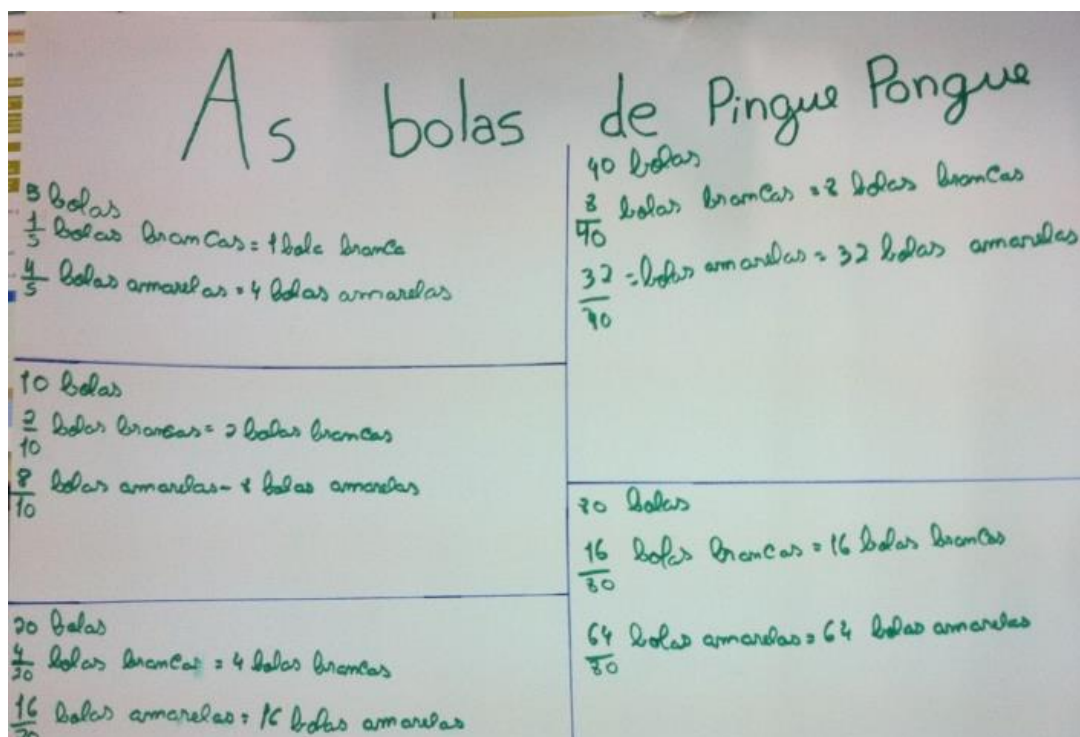 As bolas de Pingue Pongue
5 bolas
1/5 bolas brancas = 1 bola branca
4/5 bolas amarelas = 4 bolas amarelas
10 bolas
2/10 bolas brancas = 2 bolas brancas
8/10 bolas amarelas - 8 bolas amarelas
20 bolas
4/20 bolas brancas = 4 bolas brancas
16/20 bolas amarelas = 16 bolas amarelas
40 bolas
8/40 bolas brancas = 8 bolas brancas
32/40 = bolas amarelas = 32 bolas amarelas
80 bolas
16/80 bolas brancas = 16 bolas brancas
64/80 bolas amarelas = 64 bolas amarelas